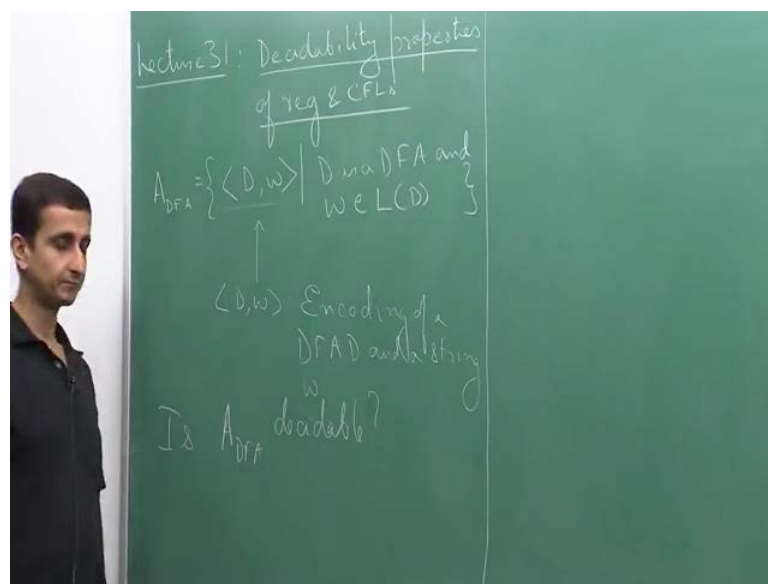 Lecture 31: Decidability properties
of reg & CFLs
A_DFA = {⟨D, w⟩ | D is a DFA and
w ∈ L(D) }
⟨D, w⟩ Encoding of a
DFA D and a string
w
Is A_DFA decidable?